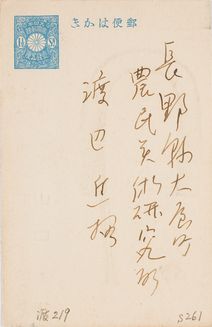 郵便はかき
長野縣大屋町
農民美術研究所
渡巴兵様
1½ 1½
渡219
S261